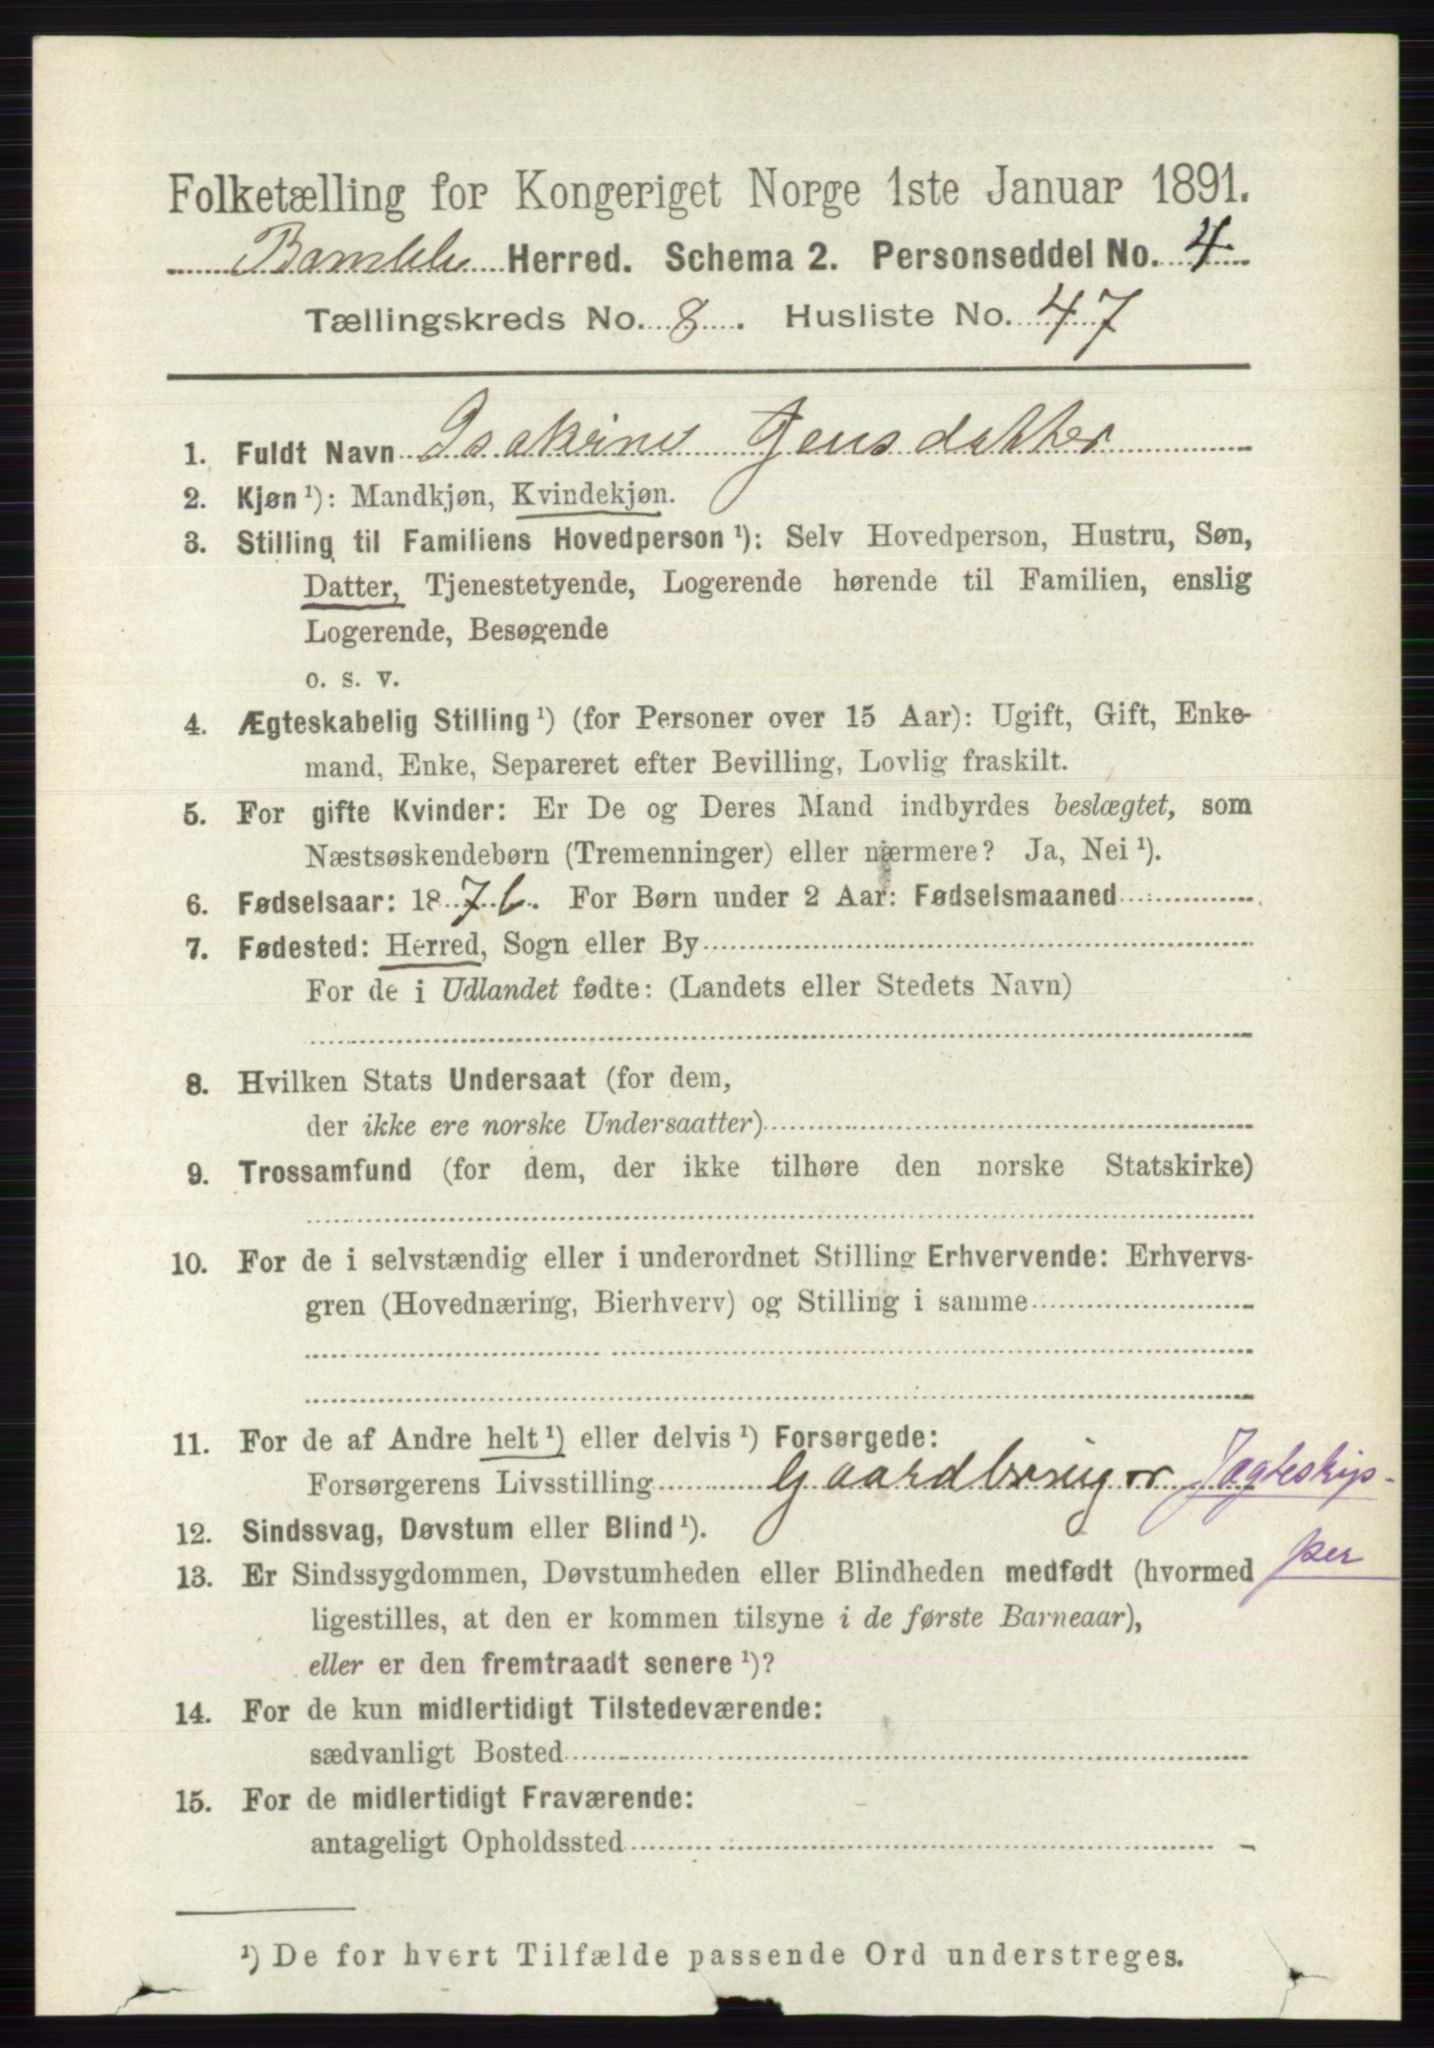 Folketælling for Kongeriget Norge 1ste Januar 1891.
Bamble Herred. Schema 2. Personseddel No. 4.
Tællingskreds No. 8. Husliste No. 47
1. Fuldt Navn Isakine Jensdatter
2. Kjøn ¹): Mandkjøn, Kvindekjøn.
3. Stilling til Familiens Hovedperson ¹): Selv Hovedperson, Hustru, Søn,
Datter, Tjenestetyende, Logerende hørende til Familien, enslig
Logerende, Besøgende
o. s. v.
4. Ægteskabelig Stilling ¹) (for Personer over 15 Aar): Ugift, Gift, Enke-
mand, Enke, Separeret efter Bevilling, Lovlig fraskilt.
5. For gifte Kvinder: Er De og Deres Mand indbyrdes beslægtet, som
Næstsøskendebørn (Tremenninger) eller nærmere? Ja, Nei ¹).
6. Fødselsaar: 1876. For Børn under 2 Aar: Fødselsmaaned
7. Fødested: Herred, Sogn eller By
For de i Udlandet fødte: (Landets eller Stedets Navn)
8. Hvilken Stats Undersaat (for dem,
der ikke ere norske Undersaatter)
9. Trossamfund (for dem, der ikke tilhøre den norske Statskirke)
10. For de i selvstændig eller i underordnet Stilling Erhvervende: Erhvervs-
gren (Hovednæring, Bierhverv) og Stilling i samme
11. For de af Andre helt ¹) eller delvis ¹) Forsørgede:
Forsørgerens Livsstilling Gaardbruger Jagteskip-
per
12. Sindssvag, Døvstum eller Blind ¹).
13. Er Sindssygdommen, Døvstumheden eller Blindheden medfødt (hvormed
ligestilles, at den er kommen tilsyne i de første Barneaar),
eller er den fremtraadt senere ¹)?
14. For de kun midlertidigt Tilstedeværende:
sædvanligt Bosted
15. For de midlertidigt Fraværende:
antageligt Opholdssted
¹) De for hvert Tilfælde passende Ord understreges.